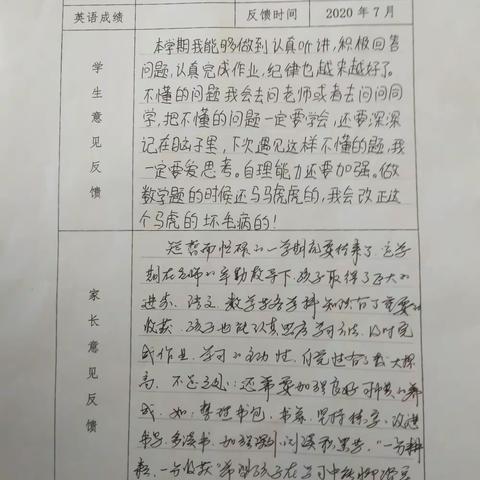 英语成绩 反馈时间 2020年7月
学生意见反馈
本学期我能够做到认真听讲,积极回答
问题,认真完成作业,纪律也越来越好了。
不懂的问题我会去问老师或者去问问同
学,把不懂的问题一定要学会,还要深深
记在脑子里,下次遇见这样不懂的题,我
一定要爱思考。自理能力还要加强。做
数学题的时候还马马虎虎的,我会改正这
个马虎的坏毛病的!
家长意见反馈
短暂而忙碌的一学期就要结束了,这学
期在老师的辛勤教导下,孩子取得了巨大的
进步,语文、数学等各学科知识有了重要的
收获,孩子也能认真思考学习方法,及时完
成作业,学习的主动性、自觉性有了很大提
高。不足之处:还需要加强良好习惯的养
成,如:整理书包、书桌,坚持练字,改进
书写,多读书,加强阅读积累等。"一分耕
耘,一分收获"希望孩子在学习中